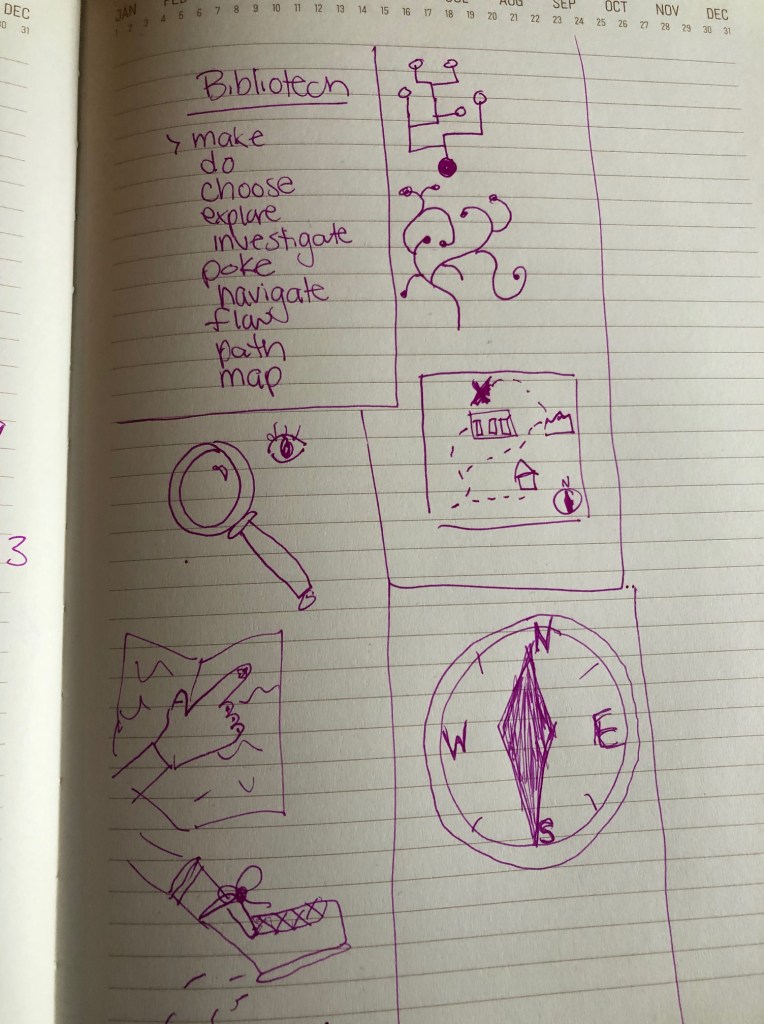 DEC
30 31
JAN
JUL AUG SEP OCT NOV DEC
1 2 3 4 5 6 7 8 9 10 11 12 13 14 15 16 17 18 19 20 21 22 23 24 25 26 27 28 29 30 31
Bibliotech
> make
do
choose
explore
investigate
poke
navigate
flaw
path
map
N
3
N
W E
S